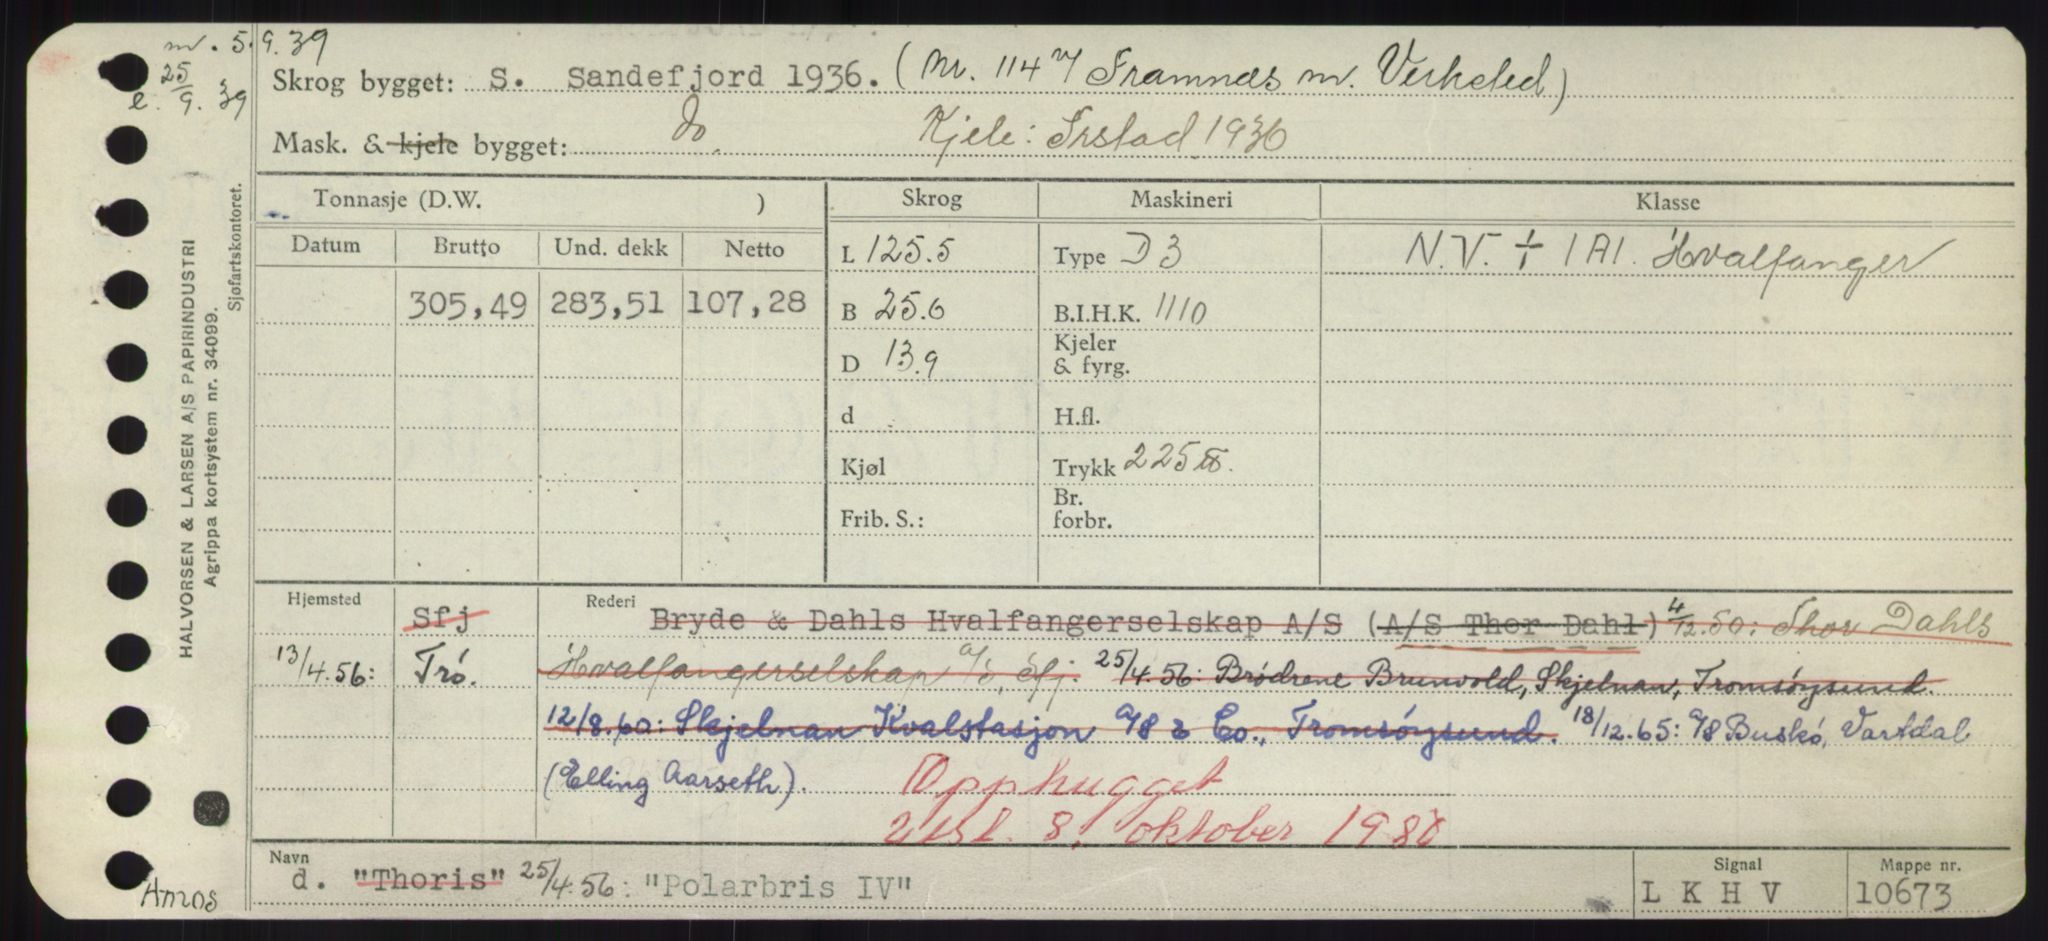 m. 5.9.39
e. 25/9.39
Skrog bygget: S. Sandefjord 1936. (Nr. 114 v/ Framnæs m. Verksted)
Mask. & kjele bygget: do. Kjele: Frstad 1936
Tonnasje (D.W. ) Skrog Maskineri Klasse
Datum Brutto Und. dekk Netto L 125.5 Type D3 N.V. ÷ 1A1. Hvalfanger
305,49 283,51 107,28 B 25.6 B.I.H.K. 1110
D 13.9 Kjeler & fyrg.
d H.fl.
Kjøl Trykk 225 lb.
Frib. S.: Br. forbr.
Hjemsted Sfj Rederi Bryde & Dahls Hvalfangerselskap A/S (A/S Thor Dahl) 4/12.50: Thor Dahls
13/4.56: Trö. Hvalfangerselskap a/s, Sfj. 25/4.56: Brödrene Brunvold, Skjelnan, Tromsöysund.
12/8.60: Skjelnan Kvalstasjon a/s & Co., Tromsöysund. 18/12.65: a/s Buskö, Vartdal
(Elling Aarseth). Opphugget
2 kl. 8. oktober 1980
Navn d. "Thoris" 25/4.56: "Polarbris IV" Signal LKHV Mappe nr. 10673
Amos
HALVORSEN & LARSEN A/S PAPIRINDUSTRI
Agrippa kortsystem nr. 34099.
Sjøfartskontoret.